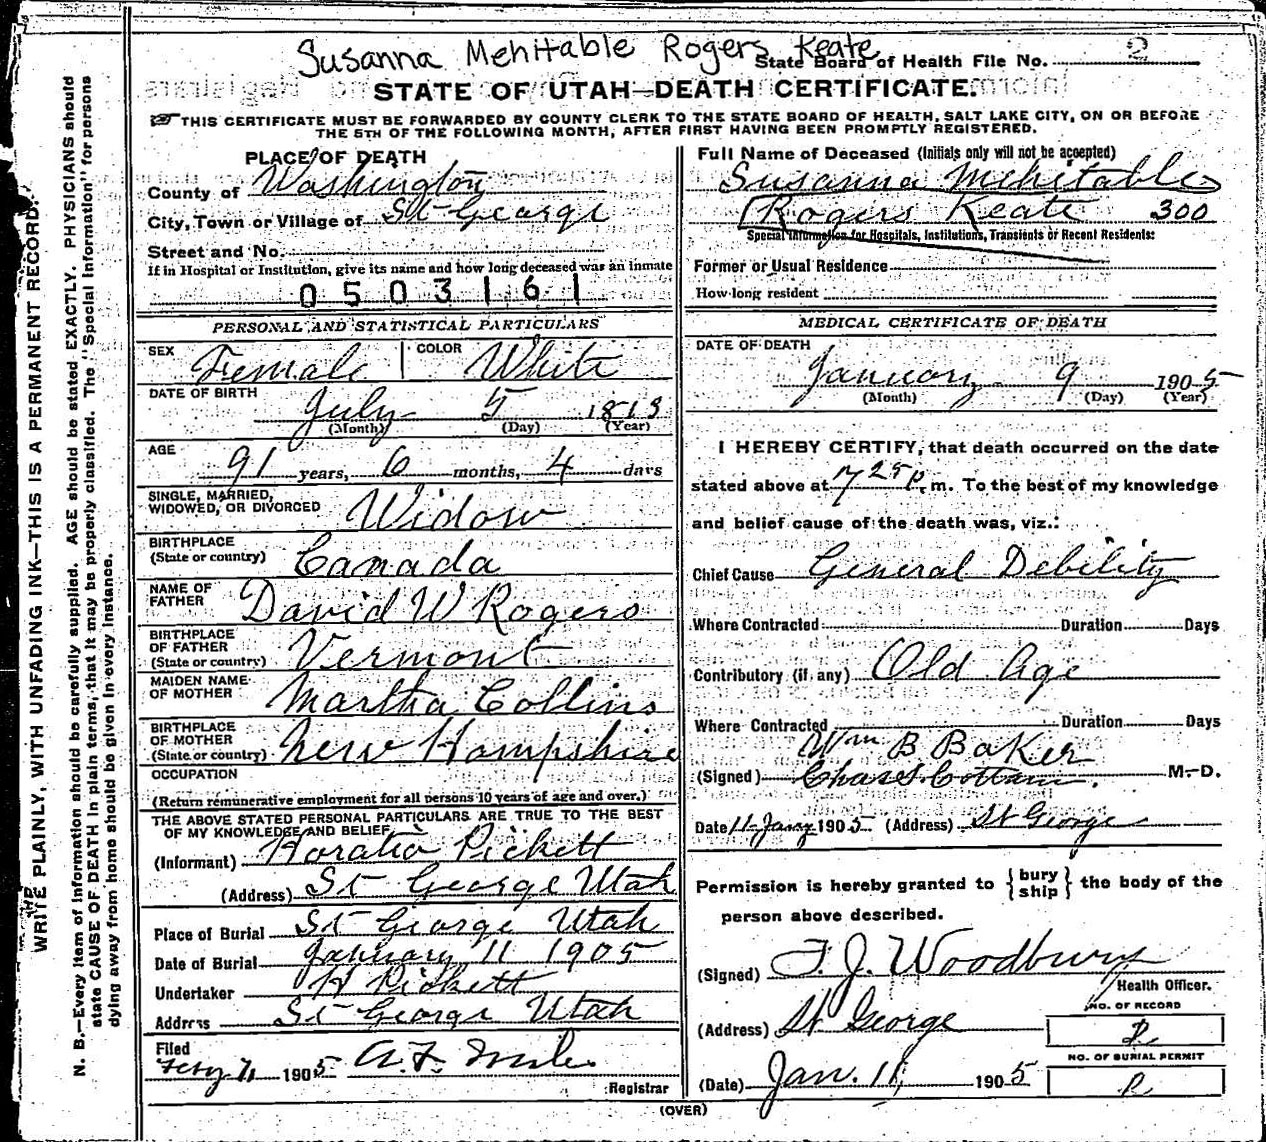 Susanna Mehitable Rogers Keate
State Board of Health File No. 2
STATE OF UTAH—DEATH CERTIFICATE.
THIS CERTIFICATE MUST BE FORWARDED BY COUNTY CLERK TO THE STATE BOARD OF HEALTH, SALT LAKE CITY, ON OR BEFORE
THE 5TH OF THE FOLLOWING MONTH, AFTER FIRST HAVING BEEN PROMPTLY REGISTERED.
WRITE PLAINLY, WITH UNFADING INK—THIS IS A PERMANENT RECORD.
N. B.—Every item of information should be carefully supplied. AGE should be stated EXACTLY. PHYSICIANS should
state CAUSE OF DEATH in plain terms, that it may be properly classified. The "Special Information" for persons
dying away from home should be given in every instance.
PLACE OF DEATH
County of Washington
City, Town or Village of St George
Street and No.
If in Hospital or Institution, give its name and how long deceased was an inmate
0503161
PERSONAL AND STATISTICAL PARTICULARS
SEX Female COLOR White
DATE OF BIRTH
July 5 1813
(Month) (Day) (Year)
AGE
91 years, 6 months, 4 days
SINGLE, MARRIED,
WIDOWED, OR DIVORCED Widow
BIRTHPLACE
(State or country) Canada
NAME OF
FATHER David W Rogers
BIRTHPLACE
OF FATHER
(State or country) Vermont
MAIDEN NAME
OF MOTHER Martha Collins
BIRTHPLACE
OF MOTHER
(State or country) New Hampshire
OCCUPATION
(Return remunerative employment for all persons 10 years of age and over.)
THE ABOVE STATED PERSONAL PARTICULARS ARE TRUE TO THE BEST
OF MY KNOWLEDGE AND BELIEF
(Informant) Horatio Pickett
(Address) St George Utah
Place of Burial St George Utah
Date of Burial January 11 1905
Undertaker H Pickett
Address St George Utah
Filed
1905 A. F. Miles
Registrar
Full Name of Deceased (Initials only will not be accepted)
Susanna Mehitable
Rogers Keate 300
Special Information for Hospitals, Institutions, Transients or Recent Residents:
Former or Usual Residence
How long resident
MEDICAL CERTIFICATE OF DEATH
DATE OF DEATH
January 9 1905
(Month) (Day) (Year)
I HEREBY CERTIFY, that death occurred on the date
stated above at 7 25 p. m. To the best of my knowledge
and belief cause of the death was, viz.:
Chief Cause General Debility
Where Contracted Duration Days
Contributory (if any) Old Age
Where Contracted Duration Days
Wm B Baker
(Signed) Chas S. Cottam. M. D.
Date 11 Jany 1905 (Address) St George
Permission is hereby granted to { bury
ship } the body of the
person above described.
(Signed) F. J. Woodbury
Health Officer.
(Address) St George
NO. OF RECORD
2
NO. OF BURIAL PERMIT
2
(Date) Jan. 11, 1905
(OVER)